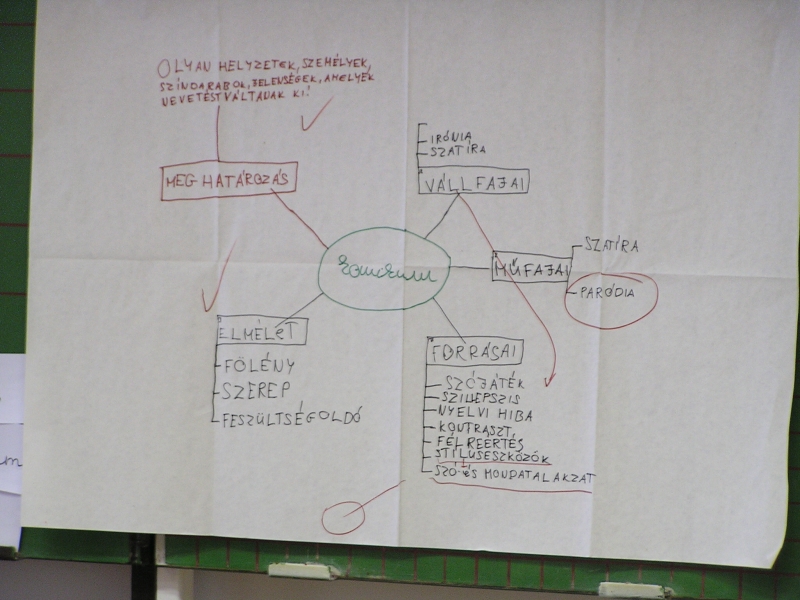 OLYAN HELYZETEK, SZEMÉLYEK,
SZÍNDARABOK, JELENSÉGEK, AMELYEK
NEVETÉST VÁLTANAK KI!
MEGHATÁROZÁS
IRÓNIA
SZATÍRA
VÁLLFAJAI
MŰFAJAI
SZATÍRA
PARÓDIA
ELMÉLET
FÖLÉNY
SZEREP
FESZÜLTSÉGOLDÓ
FORRÁSAI
SZÓJÁTÉK
SZILLEPSZIS
NYELVI HIBA
KONTRASZT,
FÉLREÉRTÉS
STÍLUSESZKÖZÖK
SZÓ- ÉS MONDATALAKZAT